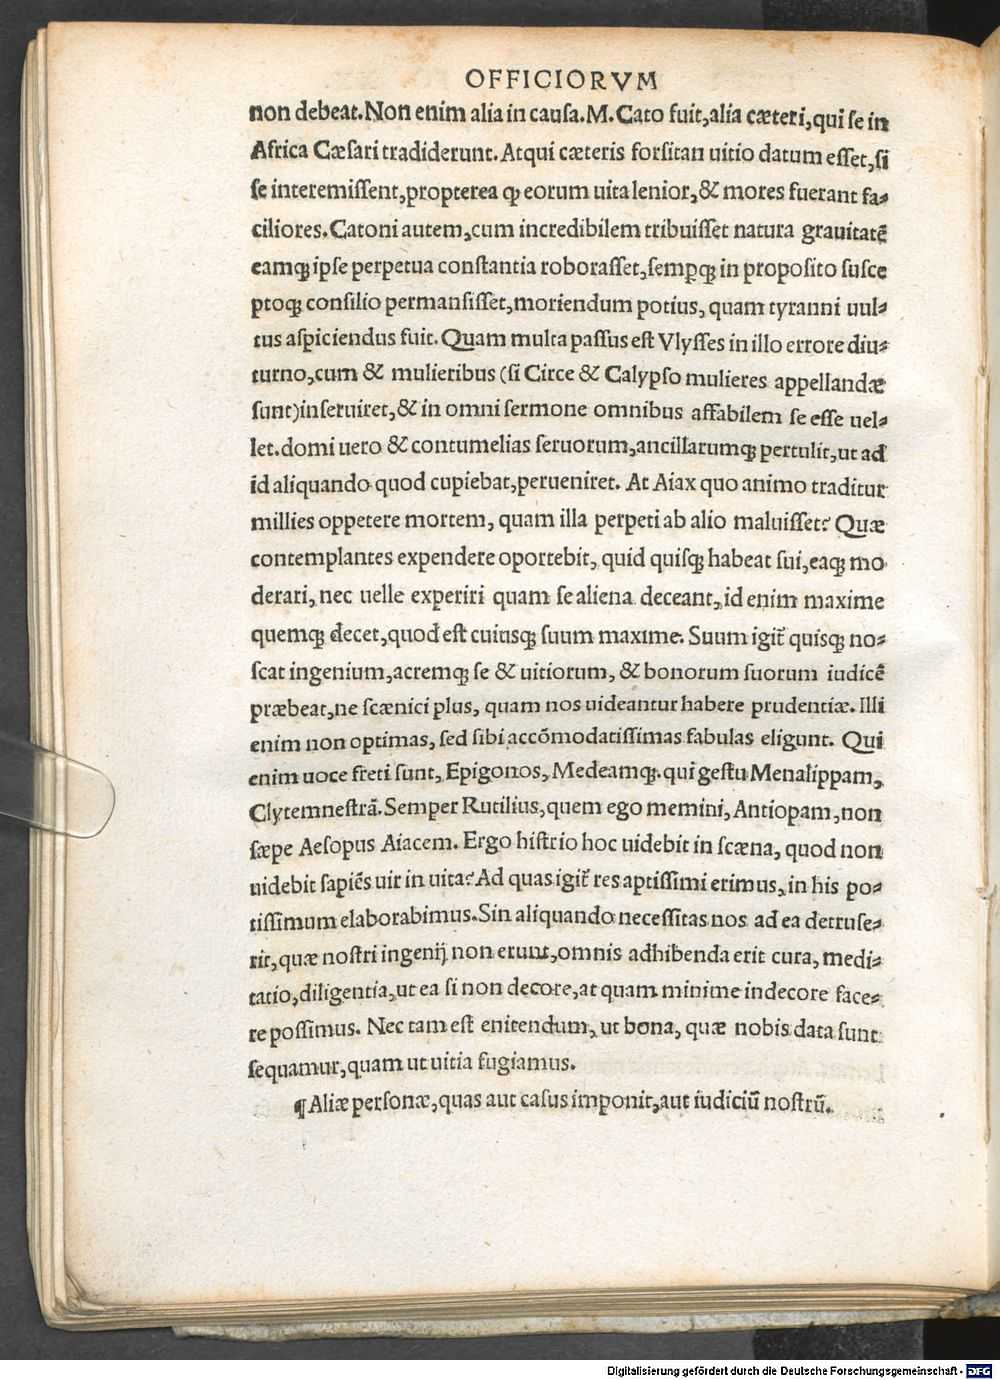 OFFICIORVM
non debeat.Non enim alia in causa.M.Cato fuit,alia cæteri,qui se in
Africa Cæsari tradiderunt.Atqui cæteris forsitan uitio datum esset,si
se interemissent,propterea ꝙ eorum uita lenior,& mores fuerant fa-
ciliores.Catoni autem,cum incredibilem tribuisset natura grauitatē
eamqꝫ ipse perpetua constantia roborasset,semꝑqꝫ in proposito susce
ptoqꝫ consilio permansisset,moriendum potius, quam tyranni uul-
tus aspiciendus fuit. Quam multa passus est Vlysses in illo errore diu-
turno,cum & mulieribus (si Circe & Calypso mulieres appellandæ
sunt)inseruiret,& in omni sermone omnibus affabilem se esse uel-
let.domi uero & contumelias seruorum,ancillarumqꝫ pertulit,ut ad
id aliquando quod cupiebat,perueniret. At Aiax quo animo traditur
millies oppetere mortem, quam illa perpeti ab alio maluisset? Quæ
contemplantes expendere oportebit, quid quisqꝫ habeat sui,eaqꝫ mo
derari, nec uelle experiri quam se aliena deceant,id enim maxime
quemqꝫ decet,quod est cuiusqꝫ suum maxime. Suum igit̃ quisqꝫ no-
scat ingenium,acremqꝫ se & uitiorum, & bonorum suorum iudicē
præbeat,ne scænici plus, quam nos uideantur habere prudentiæ. Illi
enim non optimas, sed sibi accōmodatissimas fabulas eligunt. Qui
enim uoce freti sunt, Epigonos, Medeamqꝫ.qui gestu Menalippam,
Clytemnestrā.Semper Rutilius,quem ego memini, Antiopam,non
sæpe Aesopus Aiacem. Ergo histrio hoc uidebit in scæna, quod non
uidebit sapiēs uir in uita? Ad quas igit̃ res aptissimi erimus, in his po-
tissimum elaborabimus.Sin aliquando necessitas nos ad ea detruse-
rit,quæ nostri ingenij non erunt,omnis adhibenda erit cura, medi-
tatio,diligentia,ut ea si non decore,at quam minime indecore face-
re possimus. Nec tam est enitendum, ut bona, quæ nobis data sunt
sequamur,quam ut uitia fugiamus.
¶ Aliæ personæ,quas aut casus imponit,aut iudiciū nostrū.
Digitalisierung gefördert durch die Deutsche Forschungsgemeinschaft - DFG